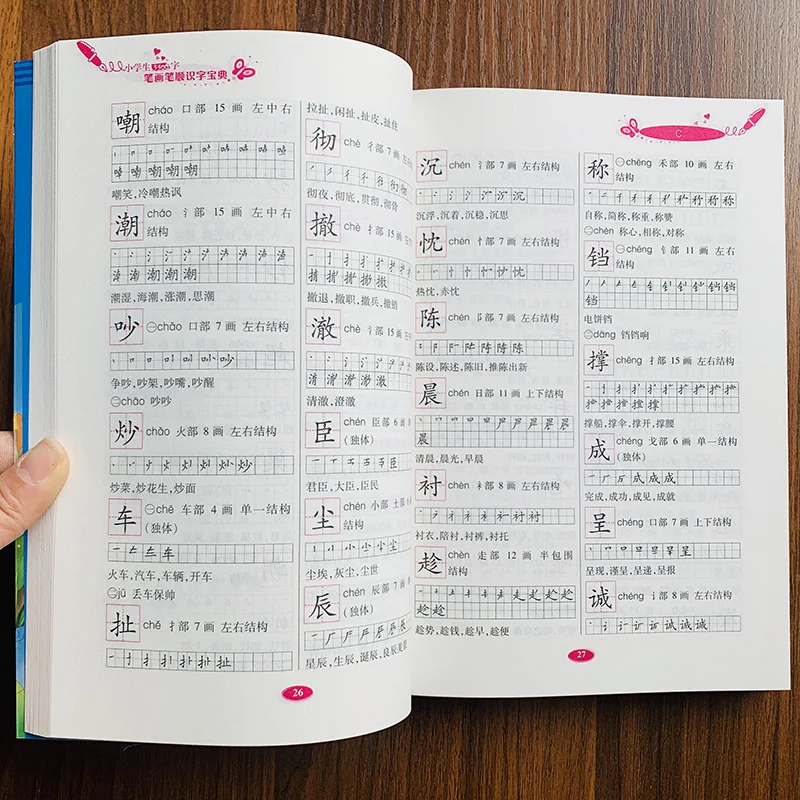 小学生
字
笔画笔顺识字宝典
嘲 cháo 口部 15 画 左中右
结构
嘲笑,冷嘲热讽
潮 cháo 氵部 15 画 左中右
结构
潮湿,海潮,涨潮,思潮
吵 ㊀chǎo 口部 7 画 左右结构
争吵,吵架,吵嘴,吵醒
㊁chāo 吵吵
炒 chǎo 火部 8 画 左右结构
炒菜,炒花生,炒面
车 ㊀chē 车部 4 画 单一结构
(独体)
火车,汽车,车辆,开车
㊁jū 丢车保帅
扯 chě 扌部 7 画 左右结构
拉扯,闲扯,扯皮,扯住
彻 chè 彳部 7 画 左右
彻夜,彻底,贯彻,彻骨
撤 chè 扌部 15 画 左
撤退,撤职,撤兵,撤销
澈 chè 氵部 15 画 左
清澈,澄澈
臣 chén 臣部 6 画
(独体)
君臣,大臣,臣民
尘 chén 小部 土部 6
结构
尘埃,灰尘,尘世
辰 chén 辰部 7 画
(独体)
星辰,生辰,诞辰,良辰美景
26
C
沉 chén 氵部 7 画 左右结构
沉浮,沉着,沉稳,沉思
忱 chén 忄部 7 画 左右结构
热忱,赤忱
陈 chén 阝部 7 画 左右结构
陈设,陈述,陈旧,推陈出新
晨 chén 日部 11 画 上下结构
清晨,晨光,早晨
衬 chèn 衤部 8 画 左右结构
衬衣,陪衬,衬裤,衬托
趁 chèn 走部 12 画 半包围
结构
趁势,趁钱,趁早,趁便
称 ㊀chēng 禾部 10 画 左右
结构
自称,简称,称重,称赞
㊁chèn 称心,相称,对称
铛 ㊀chēng 钅部 11 画 左右
结构
电饼铛
㊁dāng 铛铛响
撑 chēng 扌部 15 画 左右
结构
撑船,撑伞,撑开,撑腰
成 chéng 戈部 6 画 单一结构
(独体)
完成,成功,成见,成就
呈 chéng 口部 7 画 上下结构
呈现,谨呈,呈递,呈报
诚 chéng 讠部 8 画 左右结构
27